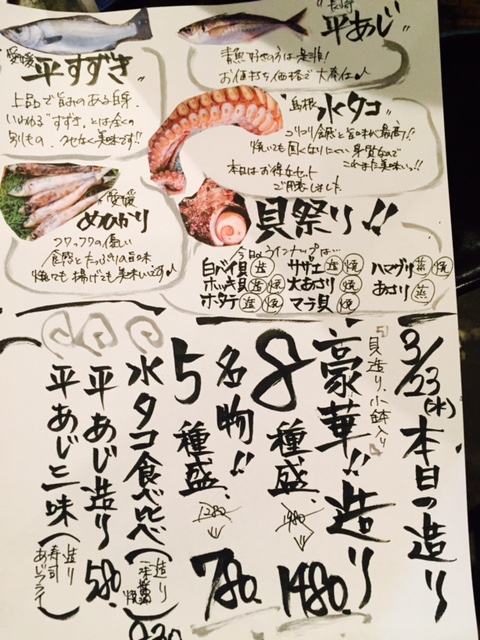 愛媛
平すずき
上品で旨みのある白身。
いわゆる"すずき"とは全くの
別もの。クセなく美味です!!
長崎
平あじ
青魚好きの方は是非!
お値打ち価格で大奉仕♪
島根
水タコ
コリコリ食感と旨味が最高!!
焼いても固くなりにくい身質なので
これまた美味いっ!!
本日はお得なセット
ご用意しました
愛媛
めひかり
フワッフワの優しい
食感とたっぷりの旨味
焼ても揚げても美味いです♪
貝祭り!!
今日のラインナップは…
白バイ貝 造
サザエ 造 焼
ハマグリ 蒸 焼
ホッキ貝 造 焼
大あさり 焼
あさり 蒸
ホタテ 造 焼
マラ貝 焼
3/23(水)本日の造り
「貝造り、小鉢入り」
豪華!!造り
8種盛、 1980 ↓ 1480.
名物!!
5種盛、 1280 ↓ 780.
水タコ食べ比べ(造り
平あじ造り 580.
平あじ三味(造り
寿司
あじフライ)